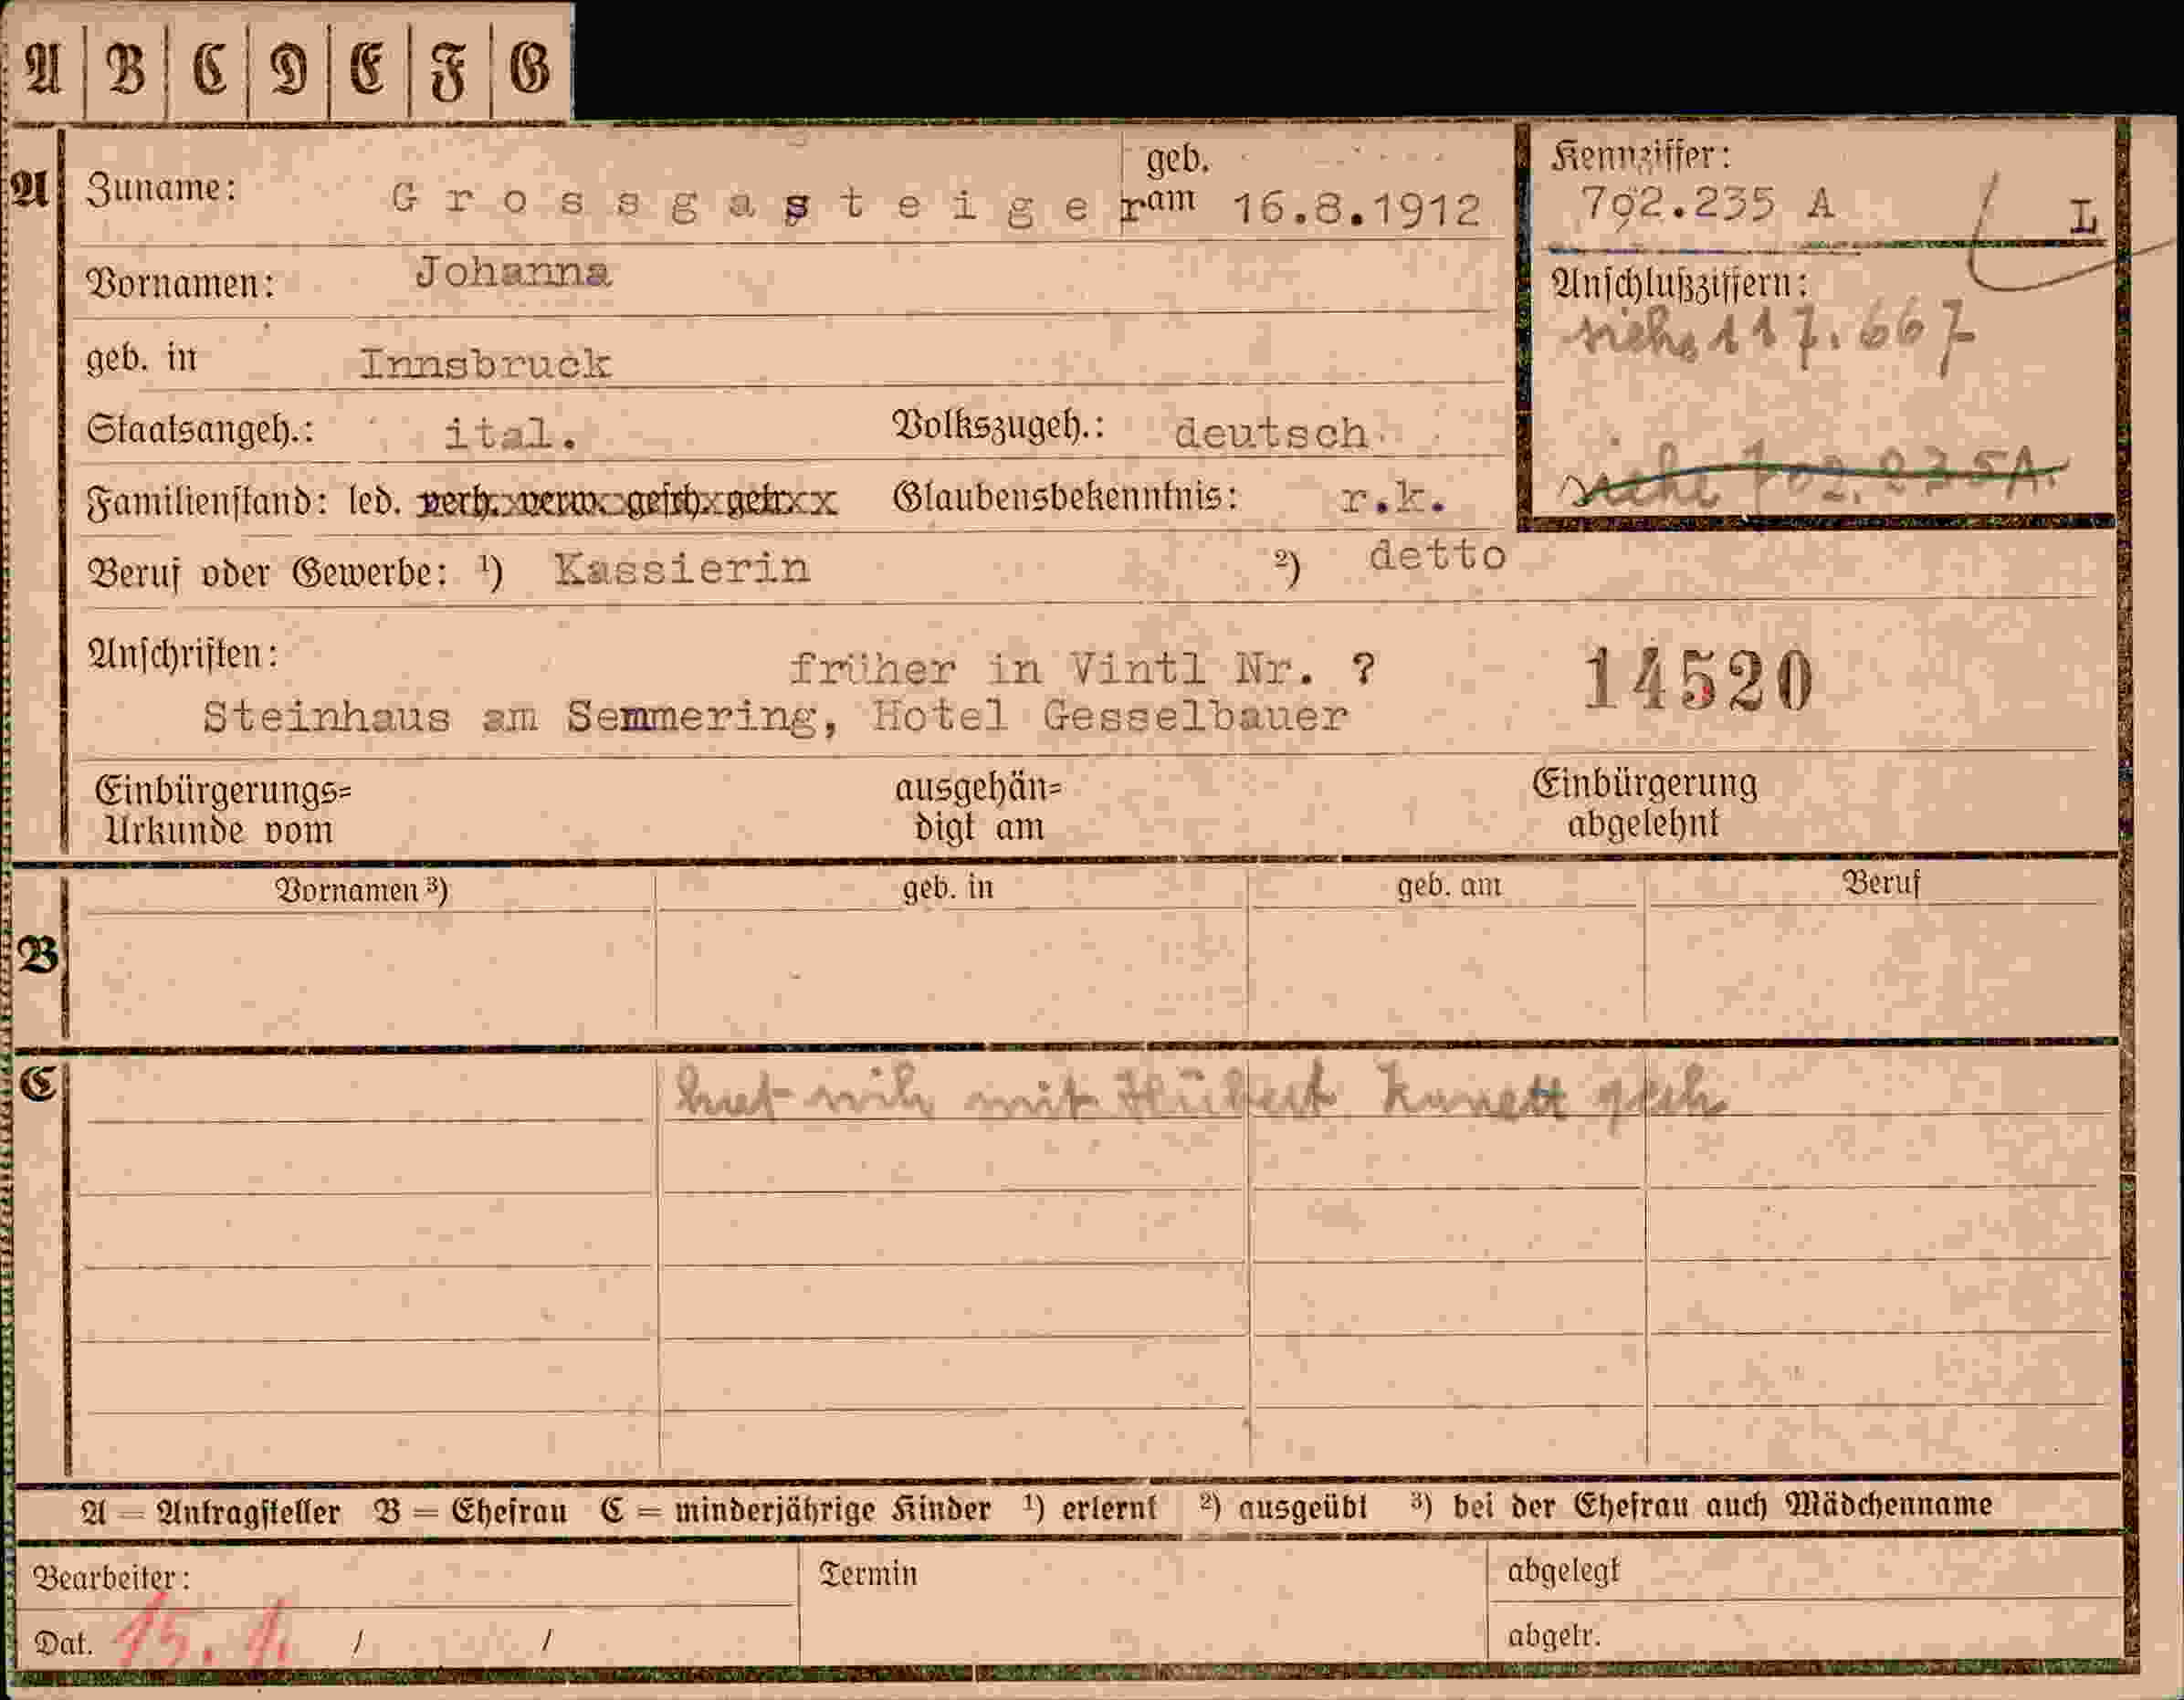 A B C D E F G
A Zuname: Grossgasteiger geb. am 16.8.1912
Kennziffer:
792.235 A L
Vornamen: Johanna
Anschlußziffern:
siehe 117.667
geb. in Innsbruck
Staatsangeh.: ital. Volkszugeh.: deutsch
siehe 702.235A.
Familienstand: led. verh. verw. gesch. getr. Glaubensbekenntnis: r.k.
Beruf oder Gewerbe: ¹) Kassierin ²) detto
Anschriften: früher in Vintl Nr. ? 14520
Steinhaus am Semmering, Hotel Gesselbauer
Einbürgerungs= ausgehän= Einbürgerung
Urkunde vom digt am abgelehnt
Vornamen ³) geb. in geb. am Beruf
B
C hat sich mit Hubert
A = Antragsteller B = Ehefrau C = minderjährige Kinder ¹) erlernt ²) ausgeübt ³) bei der Ehefrau auch Mädchenname
Bearbeiter: Termin abgelegt
Dat. 15. / / abgetr.